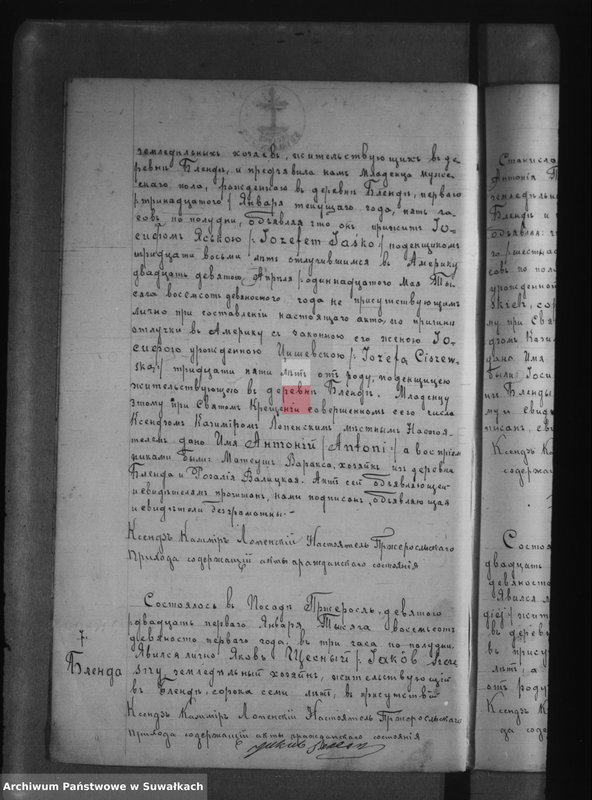 земледѣльныхъ хозяевъ, жительствующихъ въ де-
ревнѣ Блендѣ, и предъявила намъ Младенца муже-
скаго пола, рожденнаго въ деревнѣ Блендѣ, перваго
/:тринадцатого:/ Января текущаго года, пять ча-
совъ по полудни, объявляя что онъ прижитъ Іо-
сифомъ Яською /: Jozefem Jasko:/ поденщикомъ
тридцати восьми лѣтъ отлучившимся въ Америку
двадцать девятаго Апрѣля /:одиннадцатого Мая Ты-
сяча восемсотъ девяностаго года не присутствующимъ
лично при составленіи настоящаго акта, по причинѣ
отлучки въ Америку съ законною его женою Іо-
сифою урожденною Цишевскою /: Jozefa Ciszew-
ska:/ тридцати пяти лѣтъ отъ роду, поденщицею
жительствующею въ деревнѣ Блендѣ. Младенцу
этому при Святомъ Крещеніи совершенномъ сего числа
Ксендзомъ Казиміромъ Лопенскимъ мѣстнымъ Настоя-
телемъ дано Имя Антоній /Antoni:/ а воспріем-
никами были: Матеушъ Варакса, хозяинъ изъ деревни
Бленда и Розалія Валицкая. Актъ сей объявляющей
и свидѣтелямъ прочтенъ, нами подписанъ, объявляющая
и свидѣтели безграмотны.-
Ксендзъ Казиміръ Лопенскій Настоятель Пржерослскаго
Прихода содержащій акты гражданскаго состоянія
7.
Бленда
Состоялось въ Посадѣ Пржеросль, девятаго
/:двадцать перваго Января Тысяча восемьсотъ
девяносто перваго года, въ три часа по полудни.
Явился лично Яковъ Щесный /: Jakób Szcze
sny земледѣльный хозяинъ, жительствующій
въ Блендѣ, сорока семи лѣтъ, въ присутствіи
Ксендзъ Казиміръ Лопенскій Настоятель Пржерослскаго
Прихода содержащій акты гражданскаго состоянія
Станисла
Антонія
земледѣльн
Блендѣ и
объявля: ч
совъ по пол
урожденной
skiej, сор
му при Свя
дано. Имя
были: Іоси
изъ Бленды
му и свид
писанъ, св
Ксендзъ К
содержа
Состоя
двадцать
девяност
Явился л
въ деревн
въ прису
лѣтъ, а
отъ роду
Ксендзъ К
да содер
Archiwum Państwowe w Suwałkach